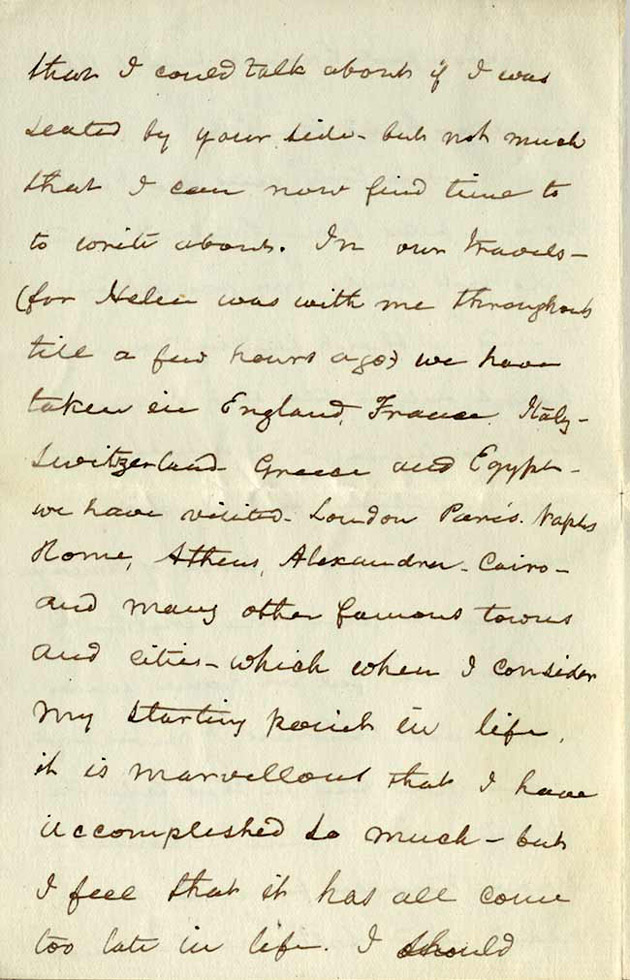 that I could talk about if I was
seated by your side - but not much
that I can now find time to
to write about. In our travels -
(for Helen was with me throughout
till a few hours ago) we have
taken in England, France. Italy -
Switzerland - Greece and Egypt -
we have visited - London Paris. Naples
Rome, Athens, Alexandria - Cairo -
and many other famous towns
and cities - which when I consider
my starting point in life,
it is marvellous that I have
accomplished so much - but
I feel that it has all come
too late in life. I should